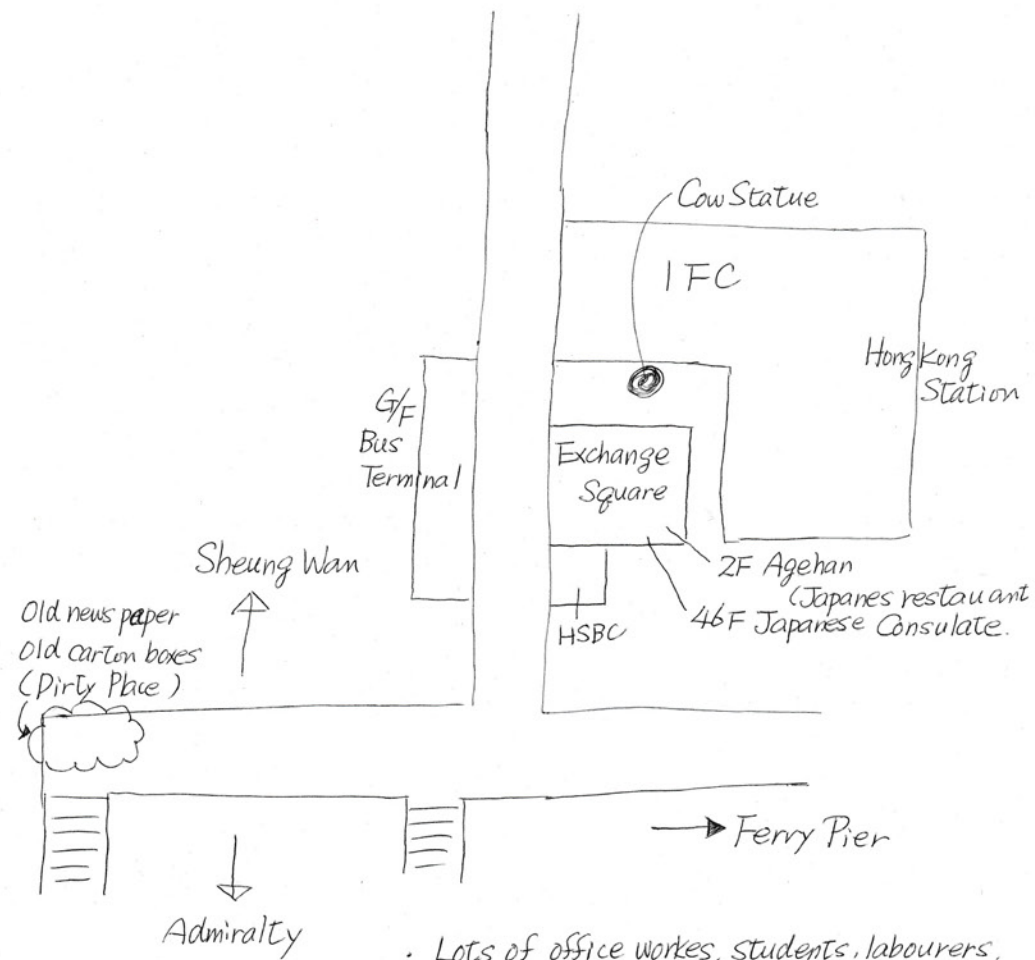 Cow Statue
IFC
Hong Kong
Station
G/F
Bus
Terminal
Exchange
Square
Sheung Wan
2F Agehan
(Japanes restauant
46F Japanese Consulate.
HSBC
Old news paper
Old carton boxes
(Dirty Place)
Ferry Pier
Admiralty
· Lots of office workes, students, labourers,